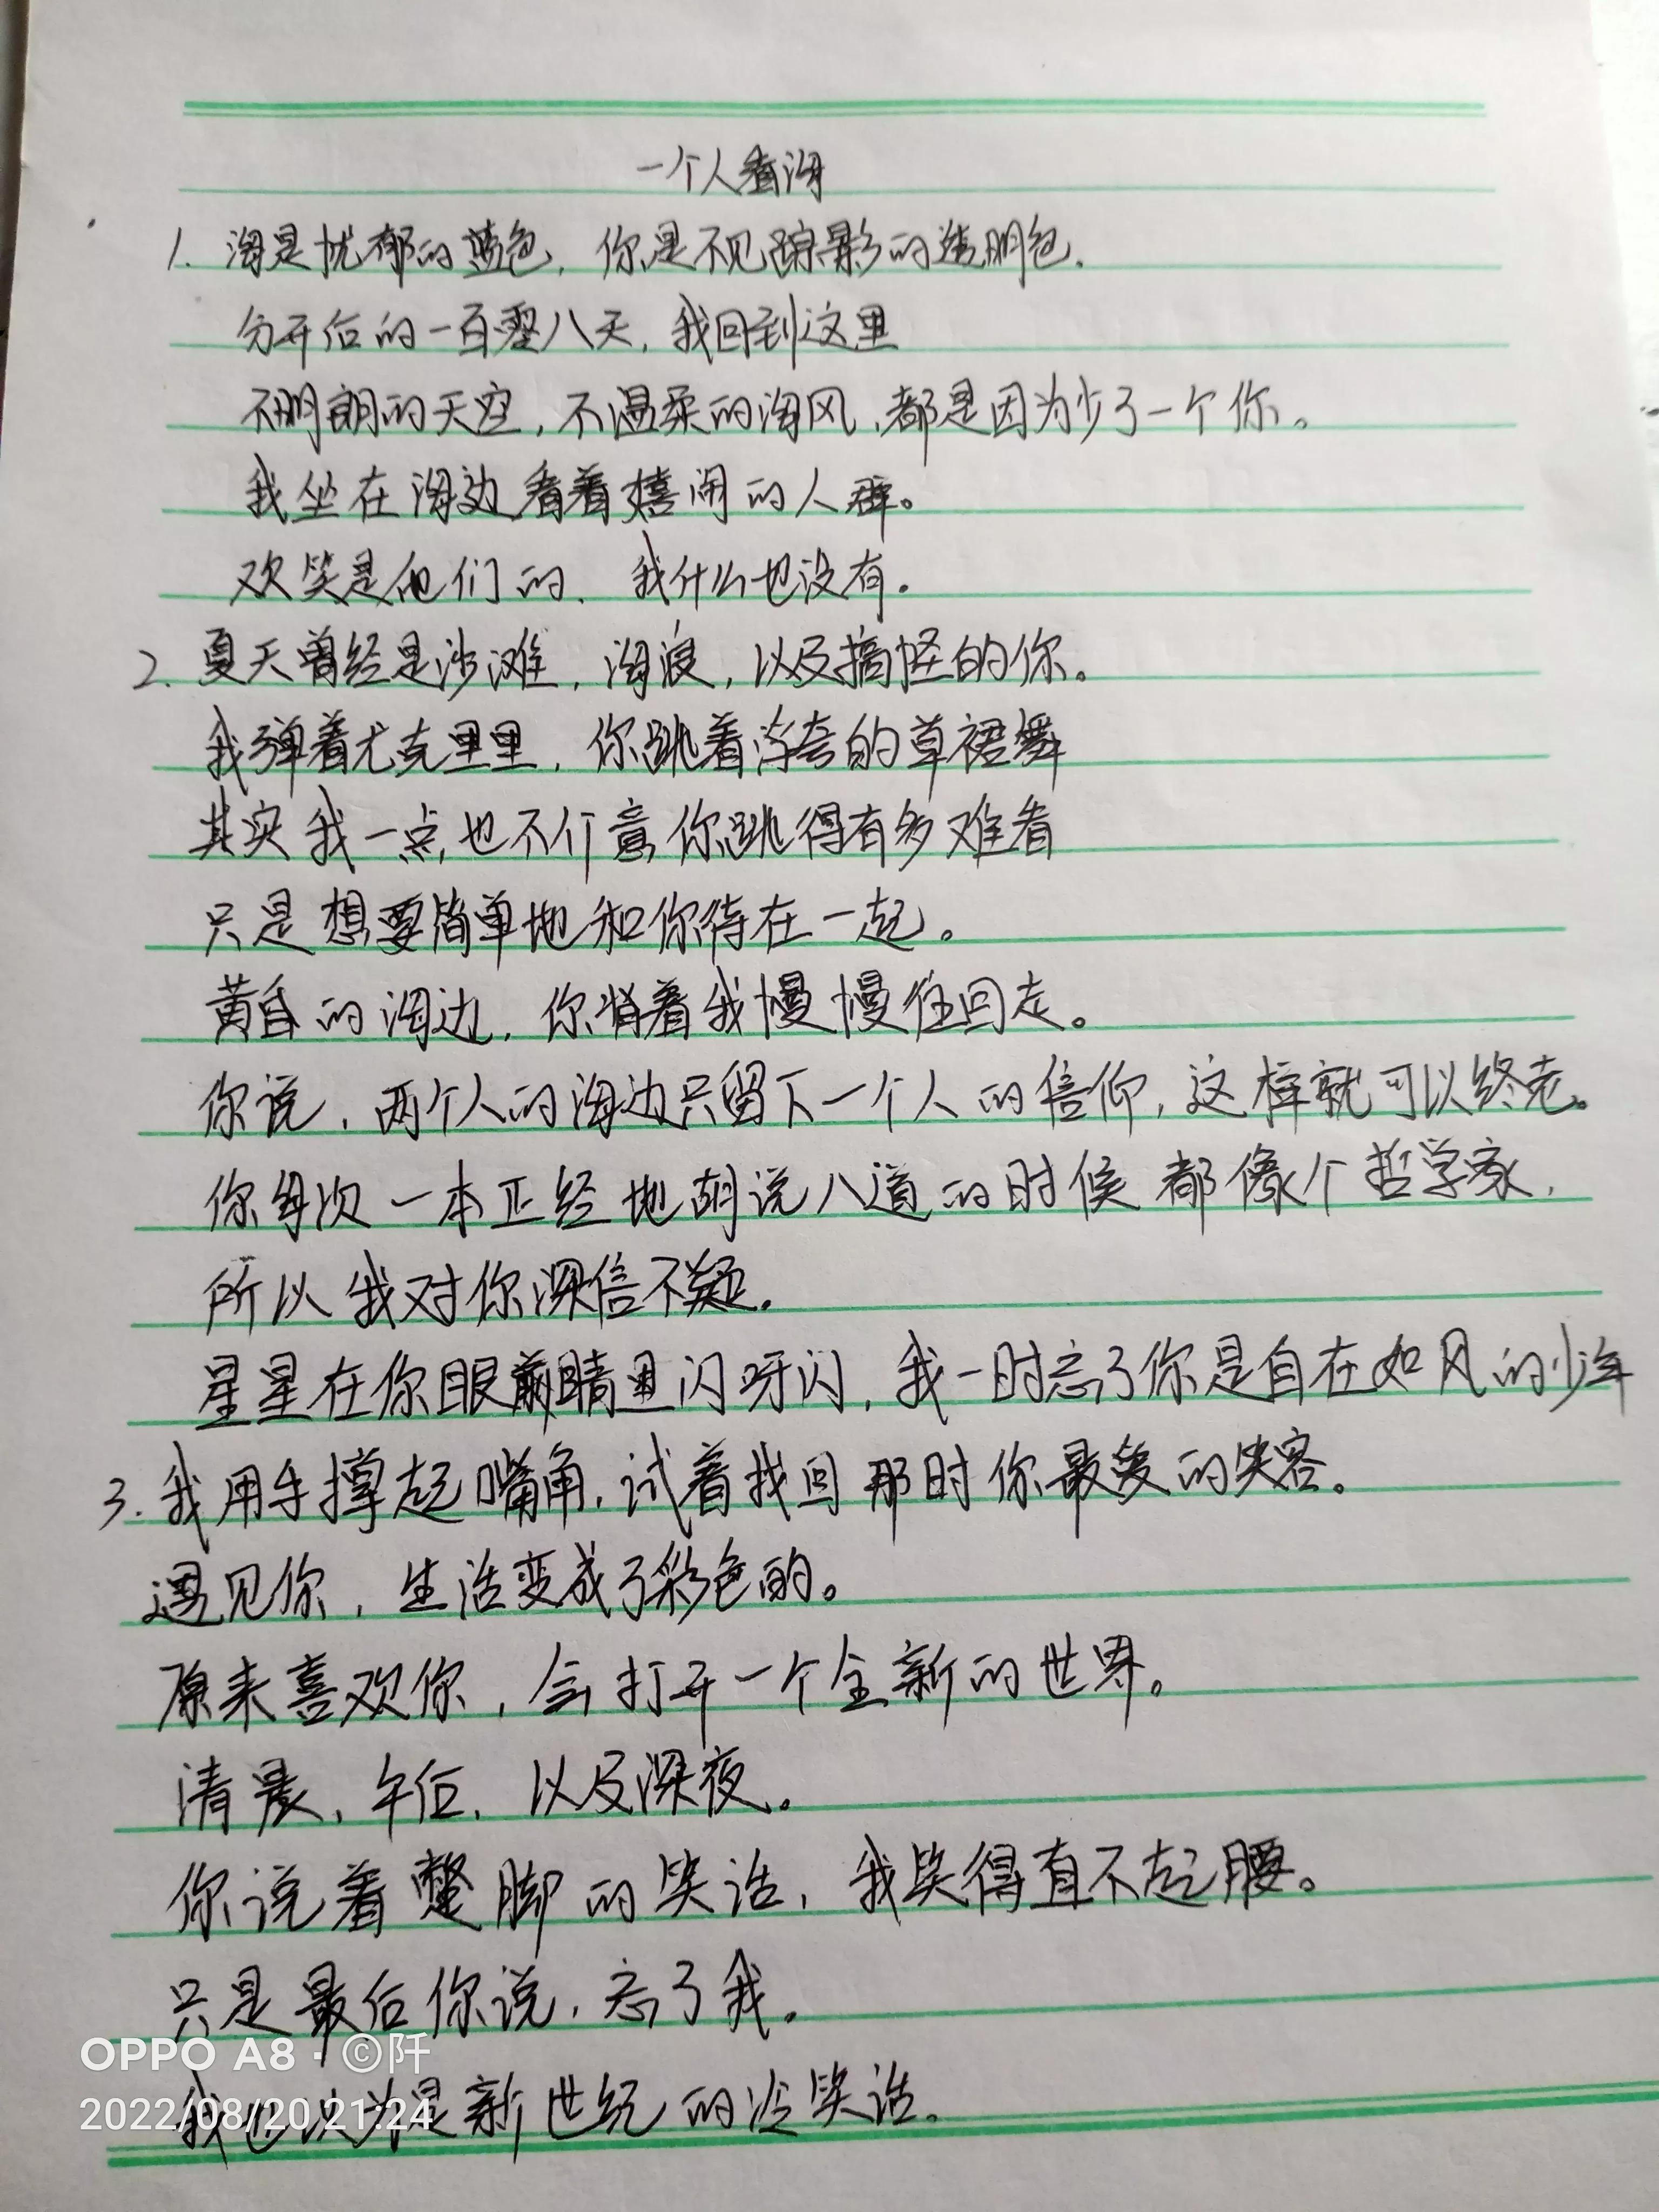 一个人看海
1. 海是忧郁的蓝色，你是不见踪影的透明色.
分开后的一百零八天，我回到这里
不明朗的天空，不温柔的海风，都是因为少了一个你。
我坐在海边看着嬉闹的人群。
欢笑是他们的，我什么也没有。
2. 夏天曾经是沙滩，海浪，以及搞怪的你。
我弹着尤克里里，你跳着浮夸的草裙舞
其实我一点也不介意你跳得有多难看
只是想要简单地和你待在一起。
黄昏的海边，你背着我慢慢往回走。
你说，两个人的海边只留下一个人的信仰，这样就可以终老。
你每次一本正经地胡说八道的时候都像个哲学家，
所以我对你深信不疑。
星星在你眼睛里闪呀闪，我一时忘了你是自在如风的少年
3. 我用手撑起嘴角，试着找回那时你最爱的笑容。
遇见你，生活变成了彩色的。
原来喜欢你，会打开一个全新的世界。
清晨、午后，以及深夜。
你说着蹩脚的笑话，我笑得直不起腰。
只是最后你说，忘了我。
我也以为是新世纪的冷笑话。
OPPO A8 · ©阡
2022/08/20 21:24